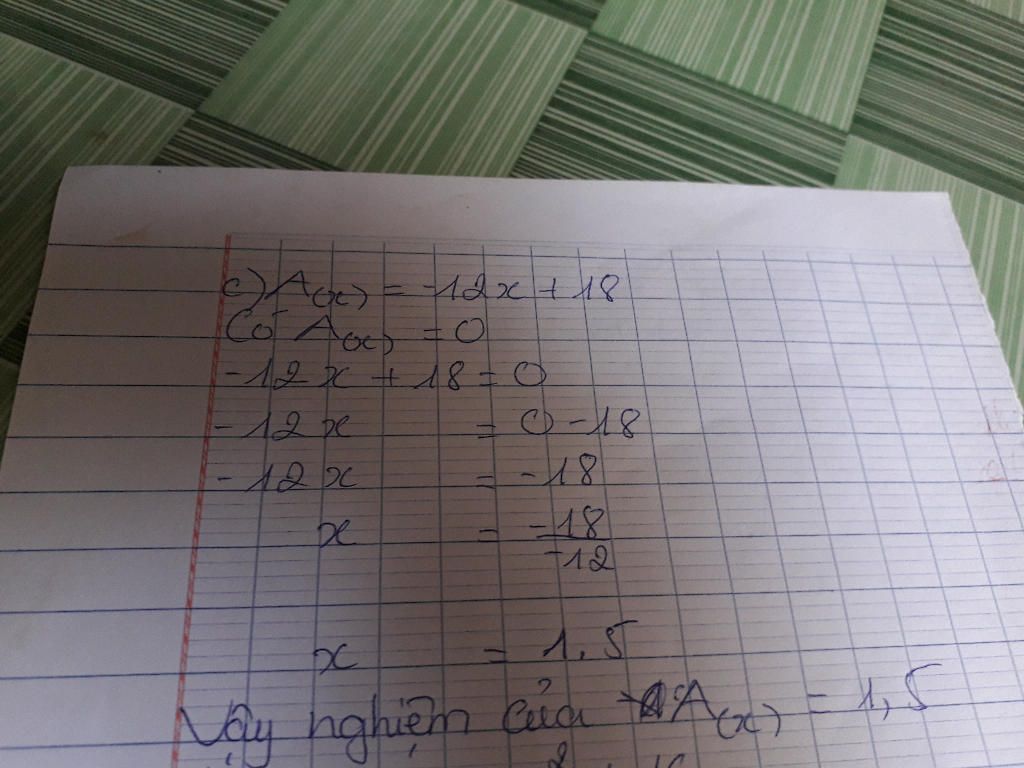 c) A(x) = -12x + 18
Có A(x) = 0
-12x + 18 = 0
-12x = 0 - 18
-12x = -18
x = -18/-12
x = 1.5
Vậy nghiệm của A(x) = 1,5